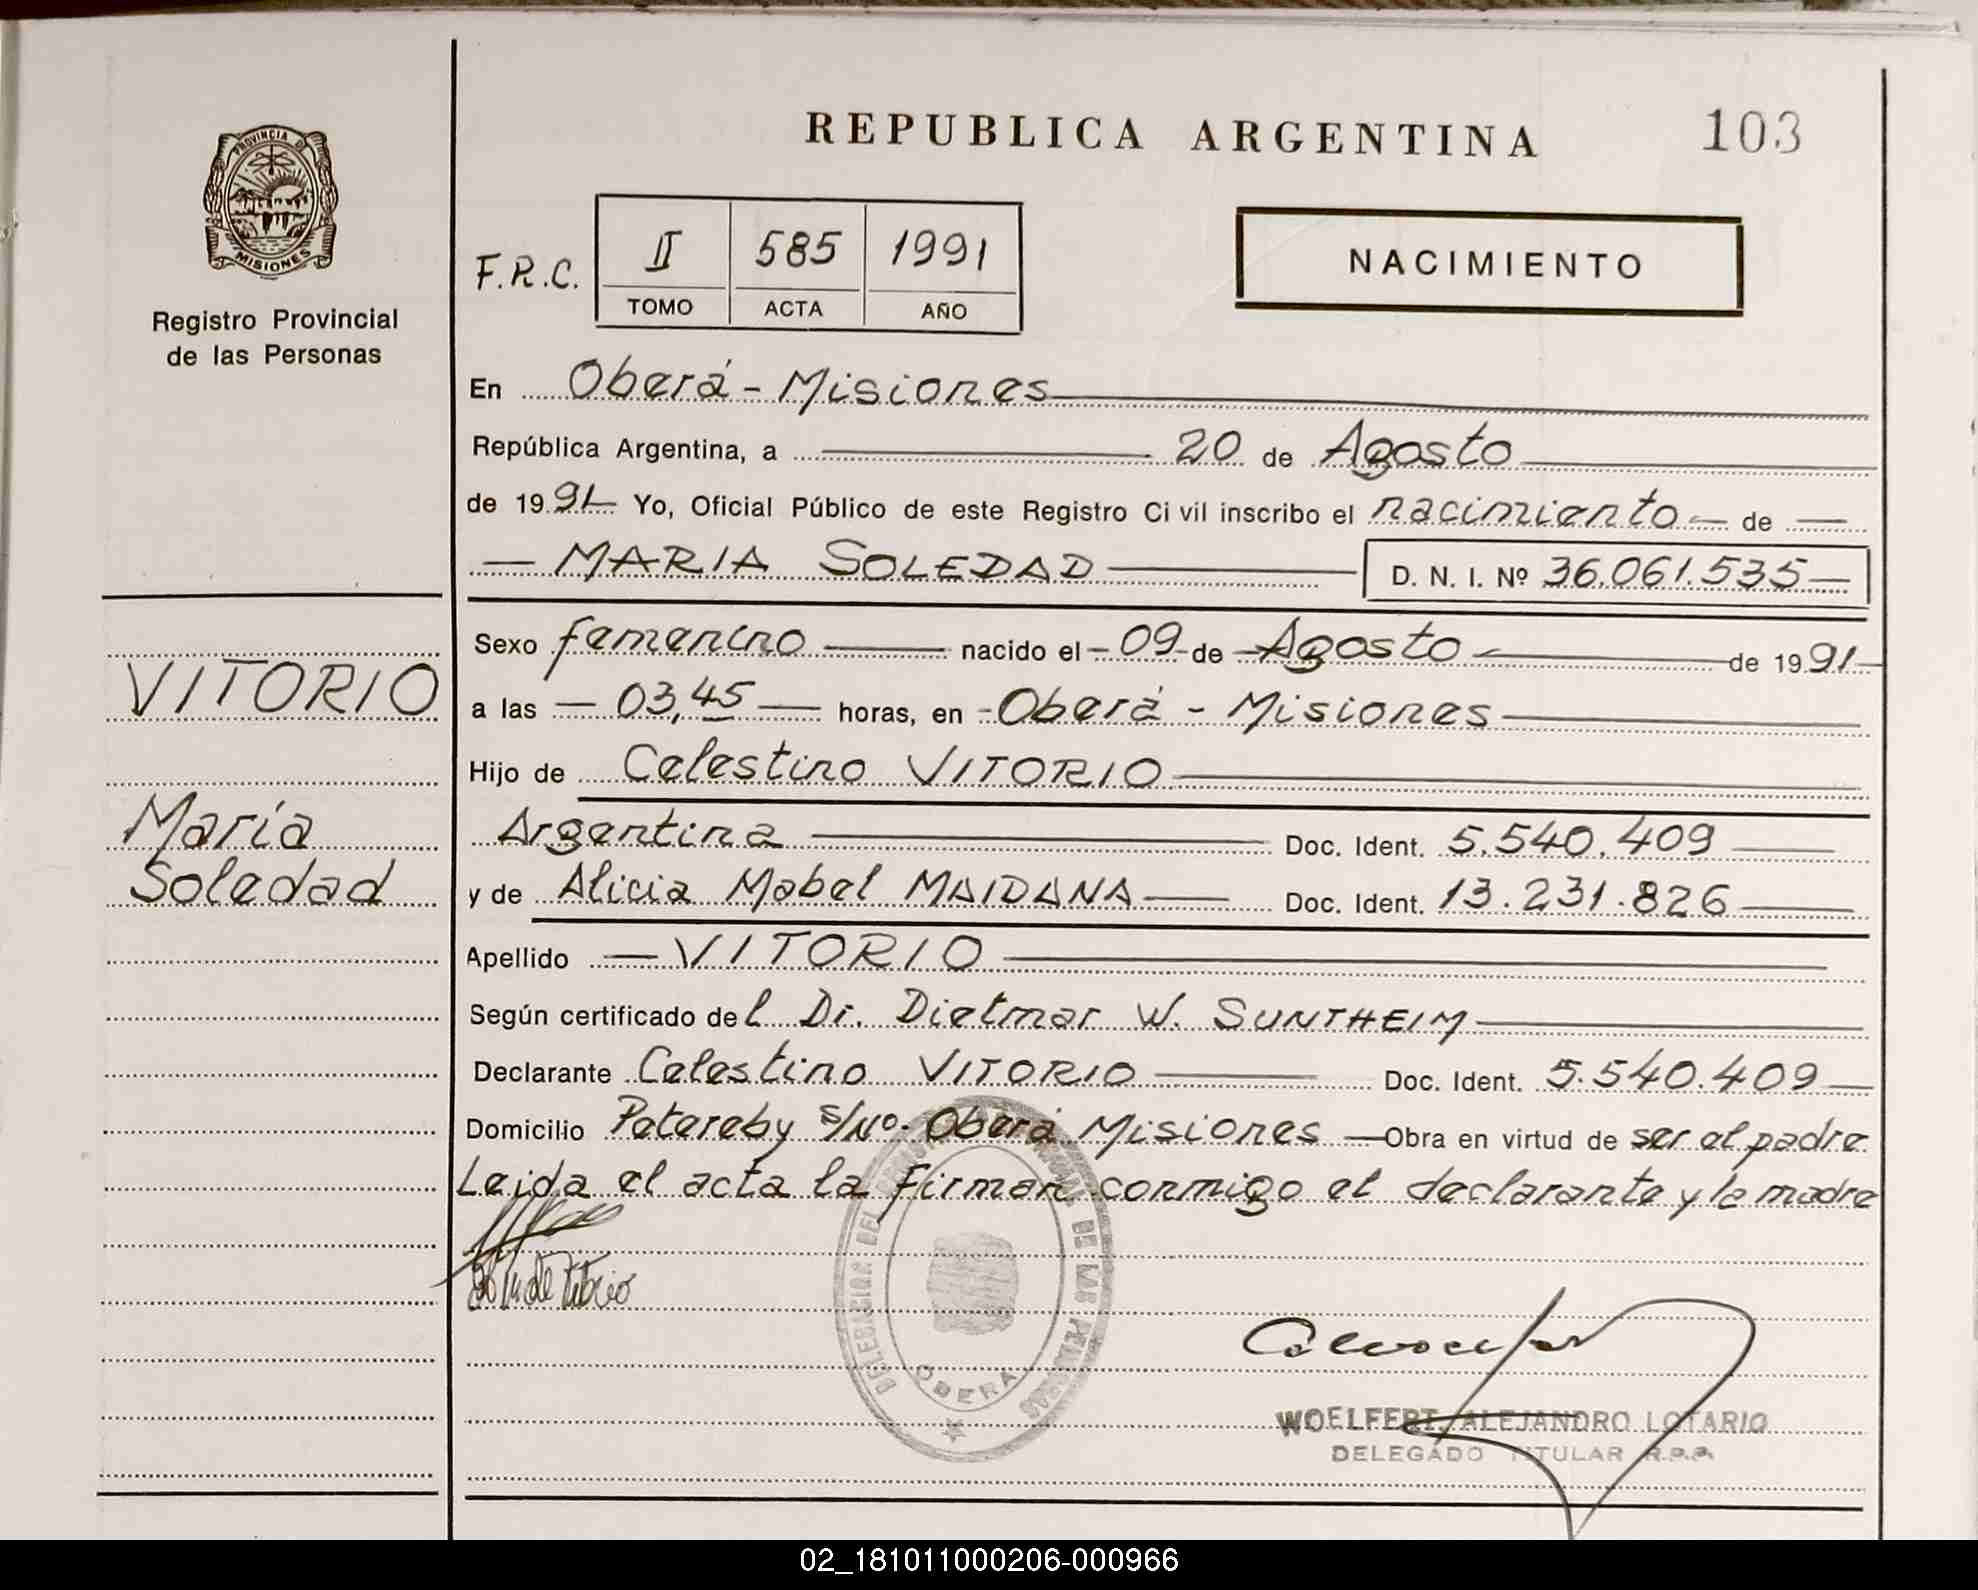 REPUBLICA ARGENTINA
103
PROVINCIA DE
MISIONES
Registro Provincial
de las Personas
F.R.C.
II 585 1991
TOMO ACTA AÑO
NACIMIENTO
En Oberá - Misiones
República Argentina, a 20 de Agosto
de 1991 Yo, Oficial Público de este Registro Civil inscribo el nacimiento de
MARIA SOLEDAD D. N. I. Nº 36.061.535
VITORIO
María
Soledad
Sexo femenino nacido el 09 de Agosto de 1991
a las 03,45 horas, en Oberá - Misiones
Hijo de Celestino VITORIO
Argentina Doc. Ident. 5.540.409
y de Alicia Mabel MAIDANA Doc. Ident. 13.231.826
Apellido VITORIO
Según certificado del Dr. Dietmar W. SUNTHEIM
Declarante Celestino VITORIO Doc. Ident. 5.540.409
Domicilio Petereby s/Nº. Oberá Misiones Obra en virtud de ser el padre
Leida el acta la firman conmigo el declarante y la madre
DELEGACION DEL DE LAS PERSONAS
OBERA
WOELFERT, ALEJANDRO LOTARIO
DELEGADO TITULAR R.P.P.
02_181011000206-000966